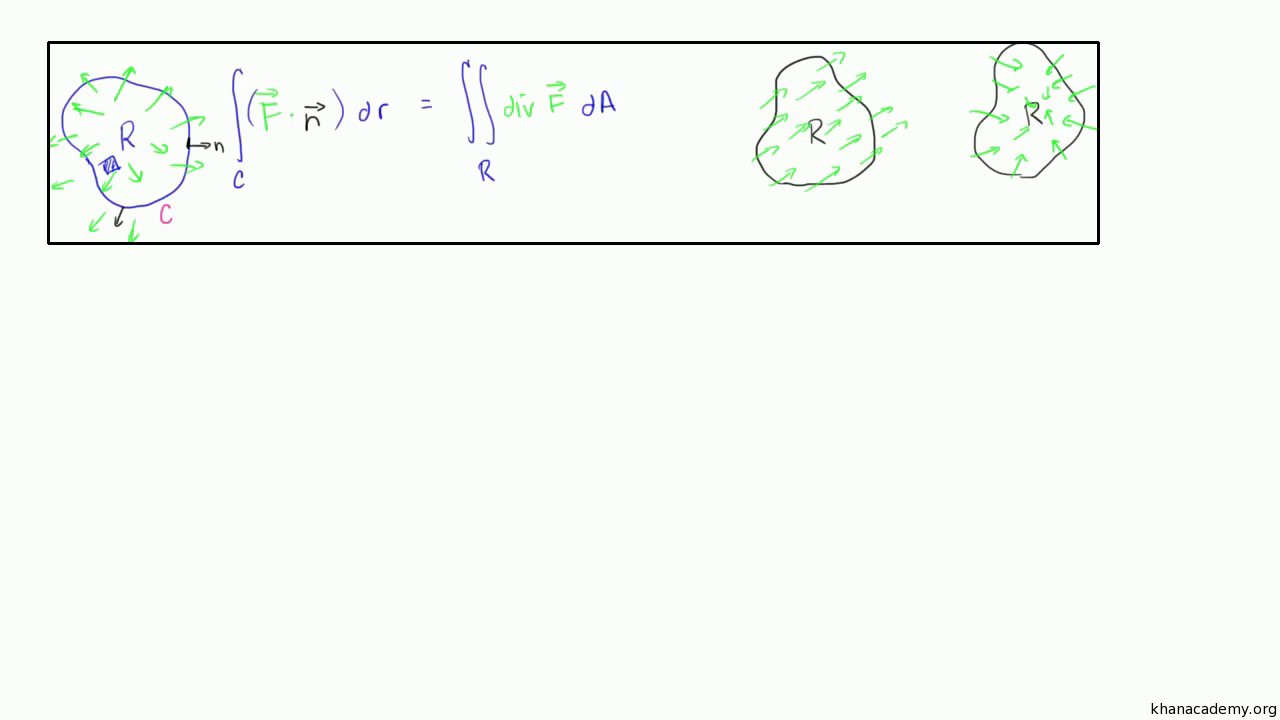 R n C
∫ (F⃗ · n⃗) dr = ∬ div F⃗ dA
C R
R
R
khanacademy.org